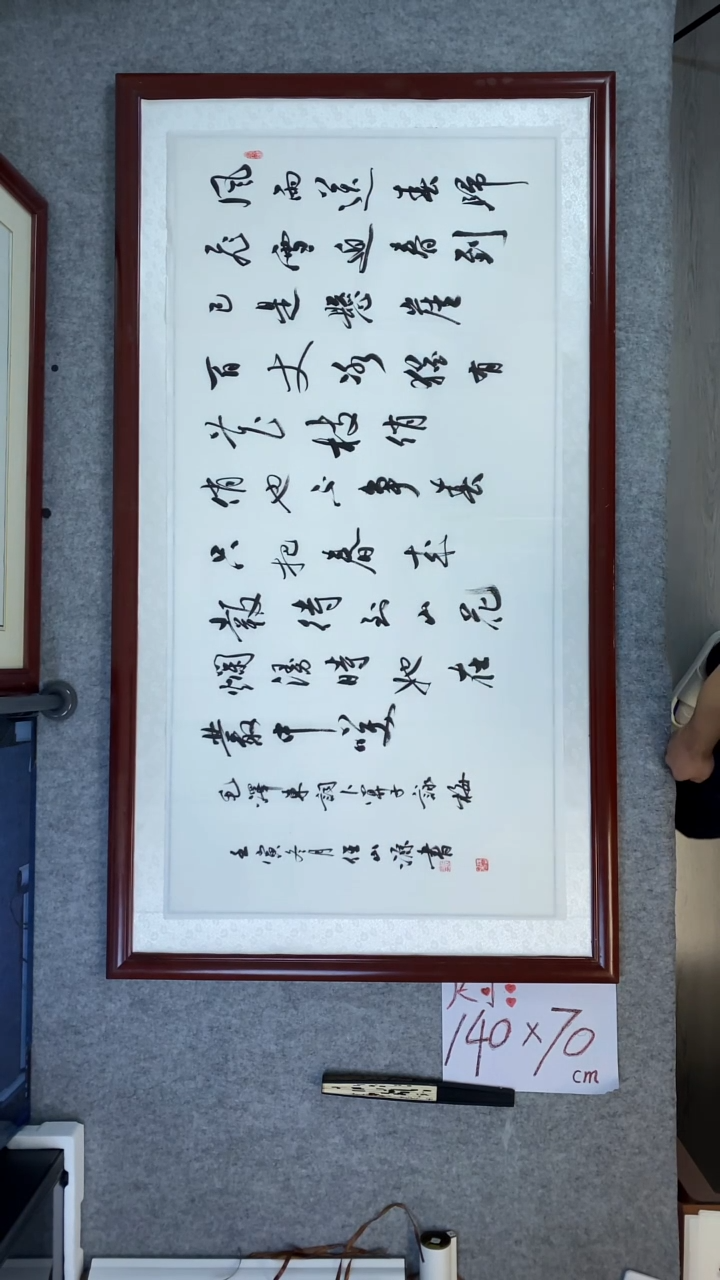 風雨送春歸
飛雪迎春到
已是懸崖
百丈冰猶有
花枝俏
俏也不爭春
只把春來
報待到山花
爛漫時她在
叢中笑
毛澤東詞卜算子詠梅
壬寅冬月任山源書
尺寸:
140×70
cm